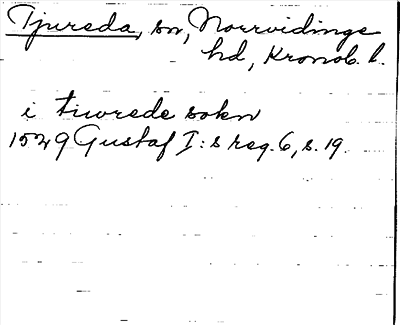 Tjureda, sn, Norrvidinge
hd, Kronob. l.
i tiwrede sokn
1529 Gustaf I:s reg. 6, s. 19.